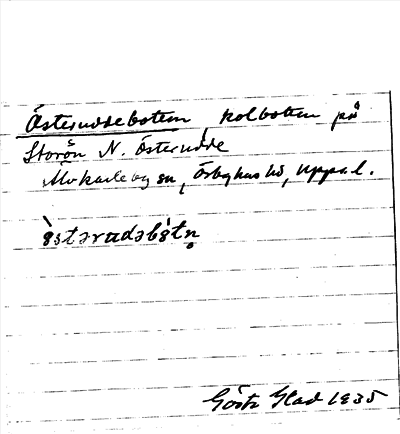 Österuddebotten, kolbotten på
Storön N. Österudde
Älvkarleby sn, Örbyhus hd, Upps. l.
Gösta Glad 1935